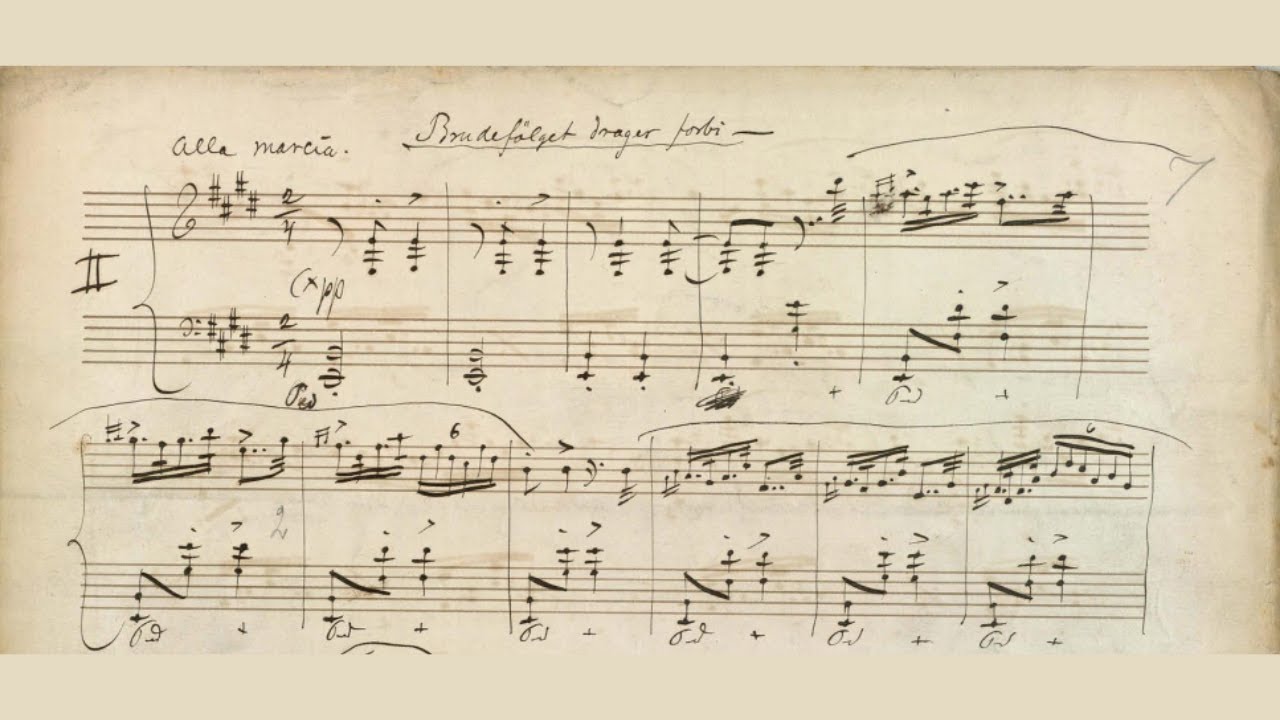 Alla marcia. Brudefölget drager forbi —
7
II
2 4
pp
2 4
Ped
Ped
6
6
2
Ped Ped Ped Ped Ped Ped